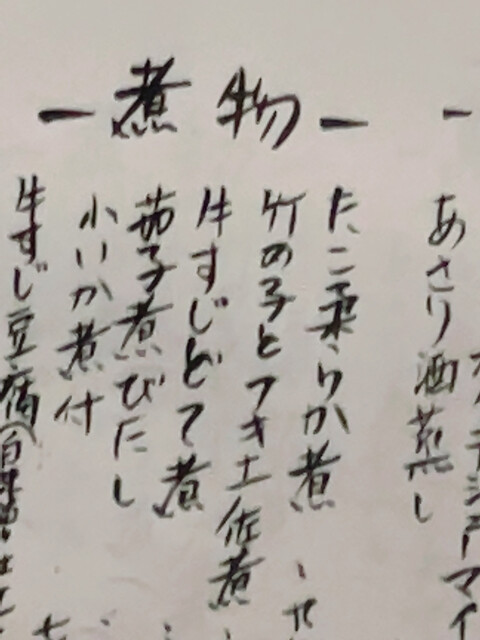 ー煮物ー
あさり酒蒸し
たこ柔らか煮
竹の子とフキ土佐煮
牛すじどて煮
茄子煮びたし
小いか煮付
牛すじ豆腐